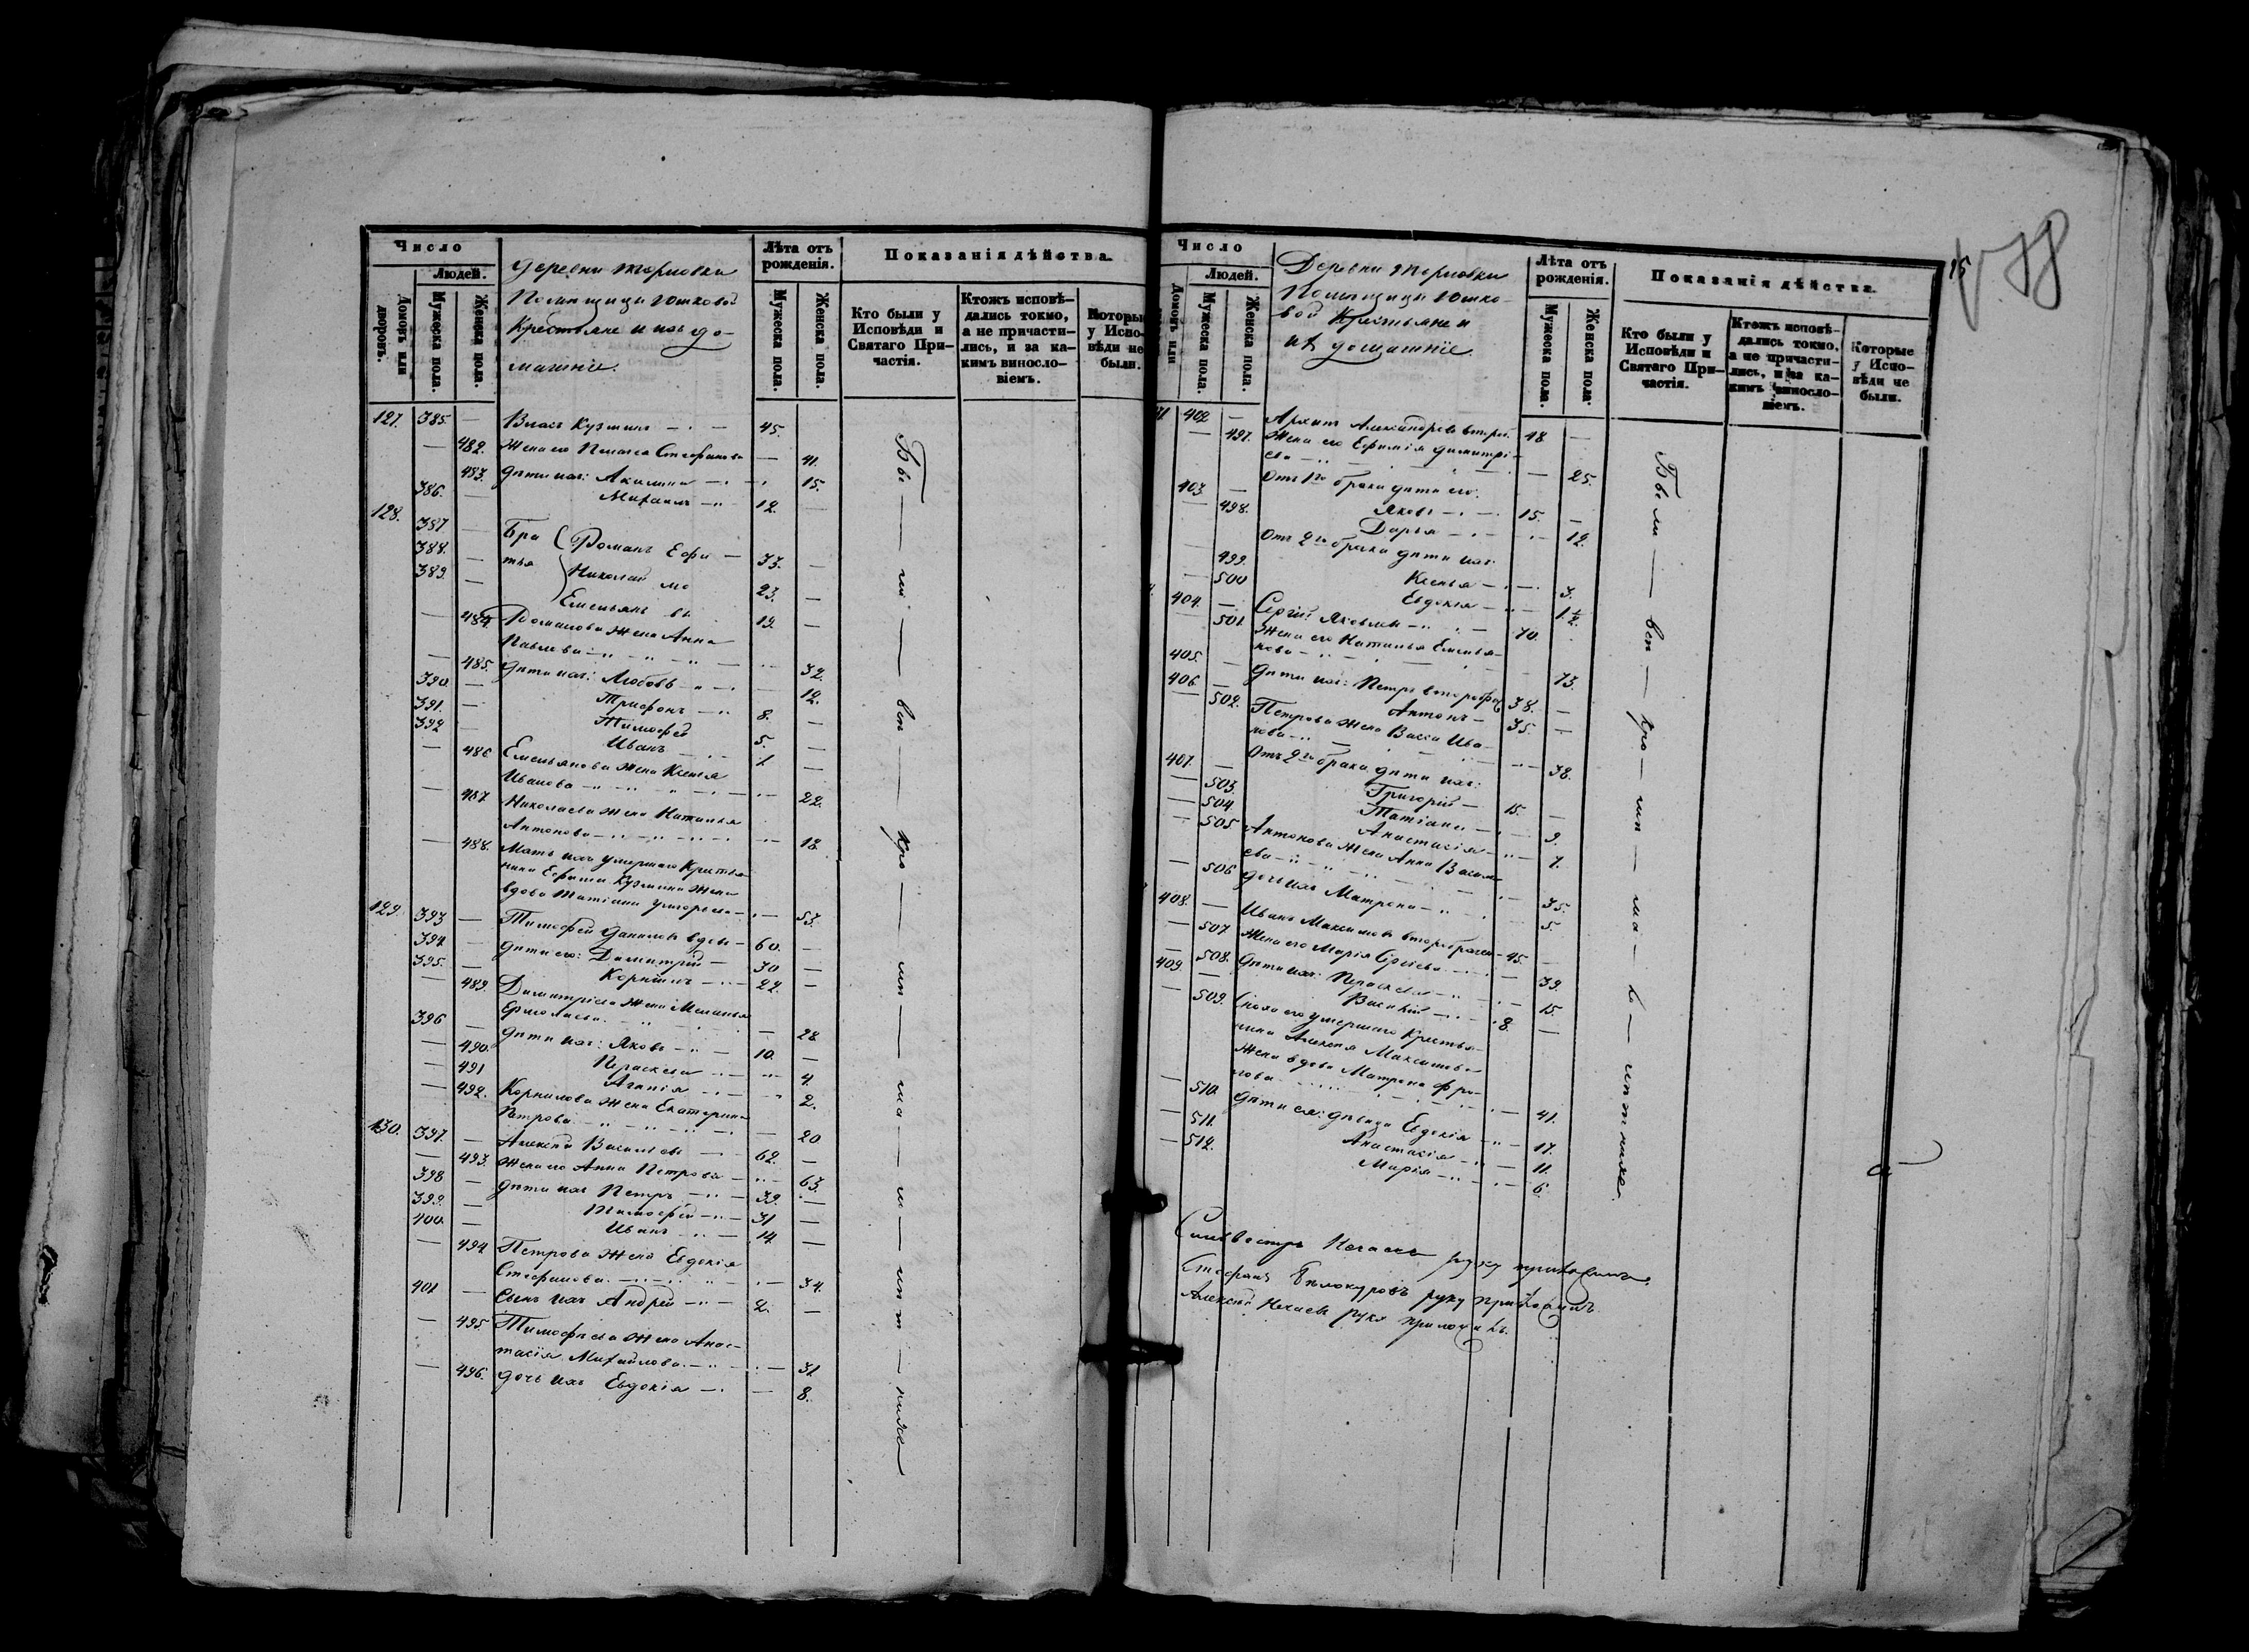 Число
Людей.
Домовъ или дворовъ.
Мужеска пола.
Женска пола.
Деревни Терновки
Помѣщицы Юшковой
Крестьяне и ихъ до-
машніе.
Лѣта отъ рожденія.
Мужеска пола.
Женска пола.
Показанія дѣйства.
Кто были у Исповѣди и Святаго При-частія.
Ктожъ исповѣ-дались токмо, а не причасти-лись, и за ка-кимъ винословіемъ.
Которые у Испо-вѣди не были.
127. 385. — Власъ Кузминъ — 45.
— 482. Жена его Пелагея Стефанова — 41.
483. Дѣти ихъ: Акилина — 15.
386. — Михаилъ — 12. —
128. 387 — Бра- Романъ Ефи — 33. —
388. — тья Николай мо 23. —
389. — Емельянъ вы 19. —
— 484. Романова жена Анна
Павлова — 32.
— 485. Дѣти ихъ: Любовь — 12.
390. — Трифонъ — 8. —
391. — Тимофей 5. —
392 — Иванъ — 1 —
— 486 Емельянова жена Ксенія
Иванова — 22.
— 487 Николаева жена Наталья
Антонова — 18.
— 488. Мать ихъ умершаго Крестья-
нина Ефима Кузмина жена
вдова Татіана Григорьева — 53.
129. 393 — Тимофей Даниловъ вдовъ — 60. —
394. — Дѣти его: Димитрій — 30 —
395. — Корнилъ — 22. —
— 489. Димитріева жена Меланья
Ермолаева — 28
396 — Дѣти ихъ: Яковъ — 10. —
— 490. Параскева — 4.
— 491 Агапія — 2.
— 492. Корнилова жена Екатерина
Петрова — 20
130. 397. — Алексѣй Васильевъ — 62. —
— 493. Жена его Анна Петрова — 63.
398 — Дѣти ихъ Петръ — 39. —
399. — Тимофей — 31 —
400. — Иванъ — 14. —
— 494 Петрова жена Евдокія
Стефанова — 34.
401 — Сынъ ихъ Андрей — 2. —
— 495. Тимофеева жена Анас-
тасія Михайлова — 31
— 496. Дочь ихъ Евдокія — 8.
Бы — ли — вси —
Число
Людей.
Домовъ или
Мужеска пола.
Женска пола.
Деревни Терновки
Помѣщицы Юшко-
вой Крестьяне и
ихъ домашніе.
Лѣта отъ рожденія.
Мужеска пола.
Женска пола.
Показанія дѣйства.
Кто были у Исповѣди и Святаго При-частія.
Ктожъ исповѣ-дались токмо, а не причасти-лись, и за ка-кимъ винословіемъ.
Которые у Испо-вѣди не были.
15
78
402 — Архипъ Александровъ второб. 48 —
— 497. Жена его Ефимія Димитрі-
ева — 25.
Отъ 1го брака дѣти его:
403. — Яковъ — 15. —
— 498. Дарья — 12.
Отъ 2го брака дѣти ихъ:
499. Ксенья — 3.
— 500 Евдокія — 1½.
404. — Сергій Яковлевъ — 70.
501. Жена его Наталья Емелья-
нова — 73.
405. — Дѣти ихъ: Петръ второбр. 38. —
406. — Антонъ — 35. —
— 502. Петрова жена Васса Ива-
нова — 38.
Отъ 2го брака дѣти ихъ:
407. — Григорій — 15. —
— 503. Татіана — 9.
— 504. Анастасія — 7.
— 505 Антонова жена Анна Василь-
ева — 35.
— 506 Дочь ихъ Матрона — 5.
408. — Иванъ Максимовъ второбрачн. — 45. —
— 507. Жена его Марія Сергіева — 39.
— 508. Дѣти ихъ: Параскева — 15.
409. — Василій — 8. —
— 509. Сноха его умершаго Крестья-
нина Алексѣя Максимова
жена вдова Матрона Фро-
лова — 41.
— 510. Дѣти ея: дѣвица Евдокія — 17.
— 511. Анастасія — 11.
— 512. Марія — 6.
Были — вси — кро — мѣ — ма — ло — лѣтнихъ.
Силивестръ Нечаевъ руку приложилъ.
Стефанъ Бѣлокуровъ руку приложилъ.
Алексѣй Нечаевъ руку приложилъ.